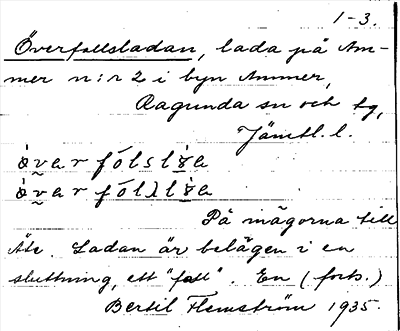 1-3.
Överfallsladan, lada på Am-
mer n:r 2 i byn Ammer,
Ragunda sn och tg,
Jämtl. l.
òvarfólslɐ̀a
òvarfólllɐ̀a
På mägorna till
Åbc. Ladan är belägen i en
sluttning, ett "fall". En (forts.)
Bertil Flemström 1935.